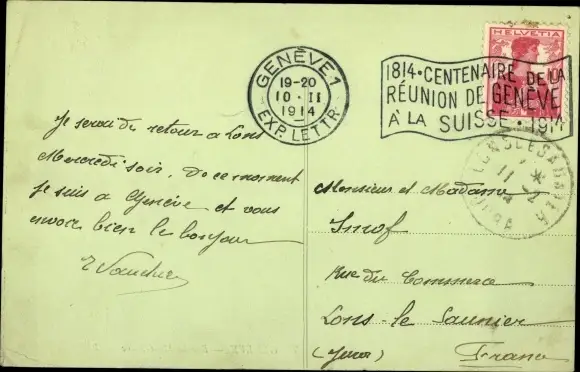 HELVETIA
GENÈVE 1
19-20
10·II
1914
EXP. LETTR.
1814·CENTENAIRE DE LA
RÉUNION DE GENÈVE
À LA SUISSE·1914
LONS LE SAUNIER
11-2
JURA
Je serai de retour à Lons
Mercredi soir. De ce moment
je suis à Genève et vous
envoie bien le bonjour
Monsieur et Madame
Rue du Commerce
Lons-le Saunier
(Jura) France